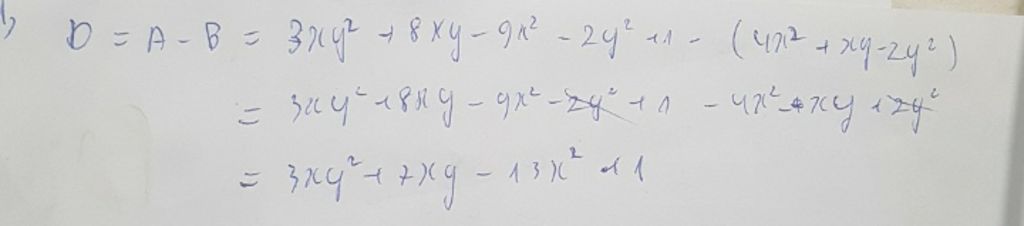 b, D = A - B = 3xy² + 8xy - 9x² - 2y² + 1 - (4x² + xy - 2y²)
= 3xy² + 8xy - 9x² - 2y² + 1 - 4x² - xy + 2y²
= 3xy² + 7xy - 13x² + 1